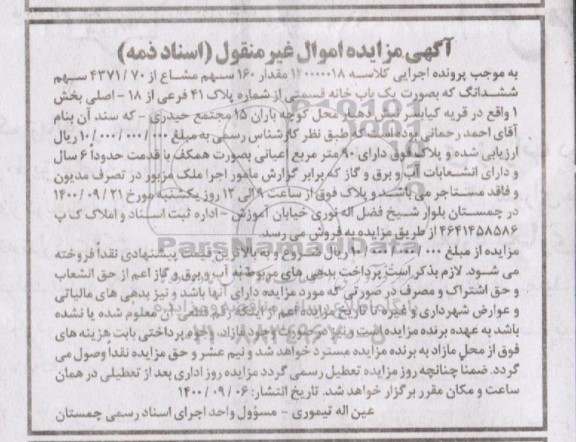 آگهی مزایده اموال غیر منقول (اسناد ذمه)
به موجب پرونده اجرایی کلاسه ۱۴۰۰۰۰۰۱۸ مقدار ۱۶۰ سهم مشاع از ۴۳۷۱/۷۰ سهم
ششدانگ که بصورت یک باب خانه قسمتی از شماره پلاک ۴۱ فرعی از ۱۸ - اصلی بخش
۱ واقع در قریه کیاسر نبش دهیار محل کوچه باران ۱۵ مجتمع حیدری - که سند آن بنام
آقای احمد رحمانی بوده است که طبق نظر کارشناس رسمی به مبلغ ۱۰/۰۰۰/۰۰۰/۰۰۰ ریال
ارزیابی شده و پلاک فوق دارای ۹۰ متر مربع اعیانی بصورت همکف با قدمت حدوداً ۶ سال
و دارای انشعابات آب و برق و گاز که برابر گزارش مامور اجرا ملک مزبور در تصرف مدیون
و فاقد مستاجر می باشد و پلاک فوق از ساعت ۹ الی ۱۲ روز یکشنبه مورخ ۱۴۰۰/۰۹/۲۱
در چمستان بلوار شیخ فضل اله نوری خیابان آموزش - اداره ثبت اسناد و املاک ک پ
۴۶۴۱۴۵۸۵۸۶ از طریق مزایده به فروش می رسد.
مزایده از مبلغ ۱۰/۰۰۰/۰۰۰/۰۰۰ ریال شروع و به بالاترین قیمت پیشنهادی نقداً فروخته
می شود. لازم بذکر است پرداخت بدهی های مربوط به آب و برق و گاز اعم از حق انشعاب
و حق اشتراک و مصرف در صورتی که مورد مزایده دارای آنها باشد و نیز بدهی های مالیاتی
و عوارض شهرداری و غیره تا تاریخ مزایده اعم از اینکه رقم قطعی آن معلوم شده یا نشده
باشد به عهده برنده مزایده است و نیز در صورت وجود مازاد، وجوه پرداختی بابت هزینه های
فوق از محل مازاد به برنده مزایده مسترد خواهد شد و نیم عشر و حق مزایده نقداً وصول می
گردد. ضمنا چنانچه روز مزایده تعطیل رسمی گردد مزایده روز اداری بعد از تعطیلی در همان
ساعت و مکان مقرر برگزار خواهد شد. تاریخ انتشار: ۱۴۰۰/۰۹/۰۶
عین اله تیموری - مسؤول واحد اجرای اسناد رسمی چمستان
ParsNamadData